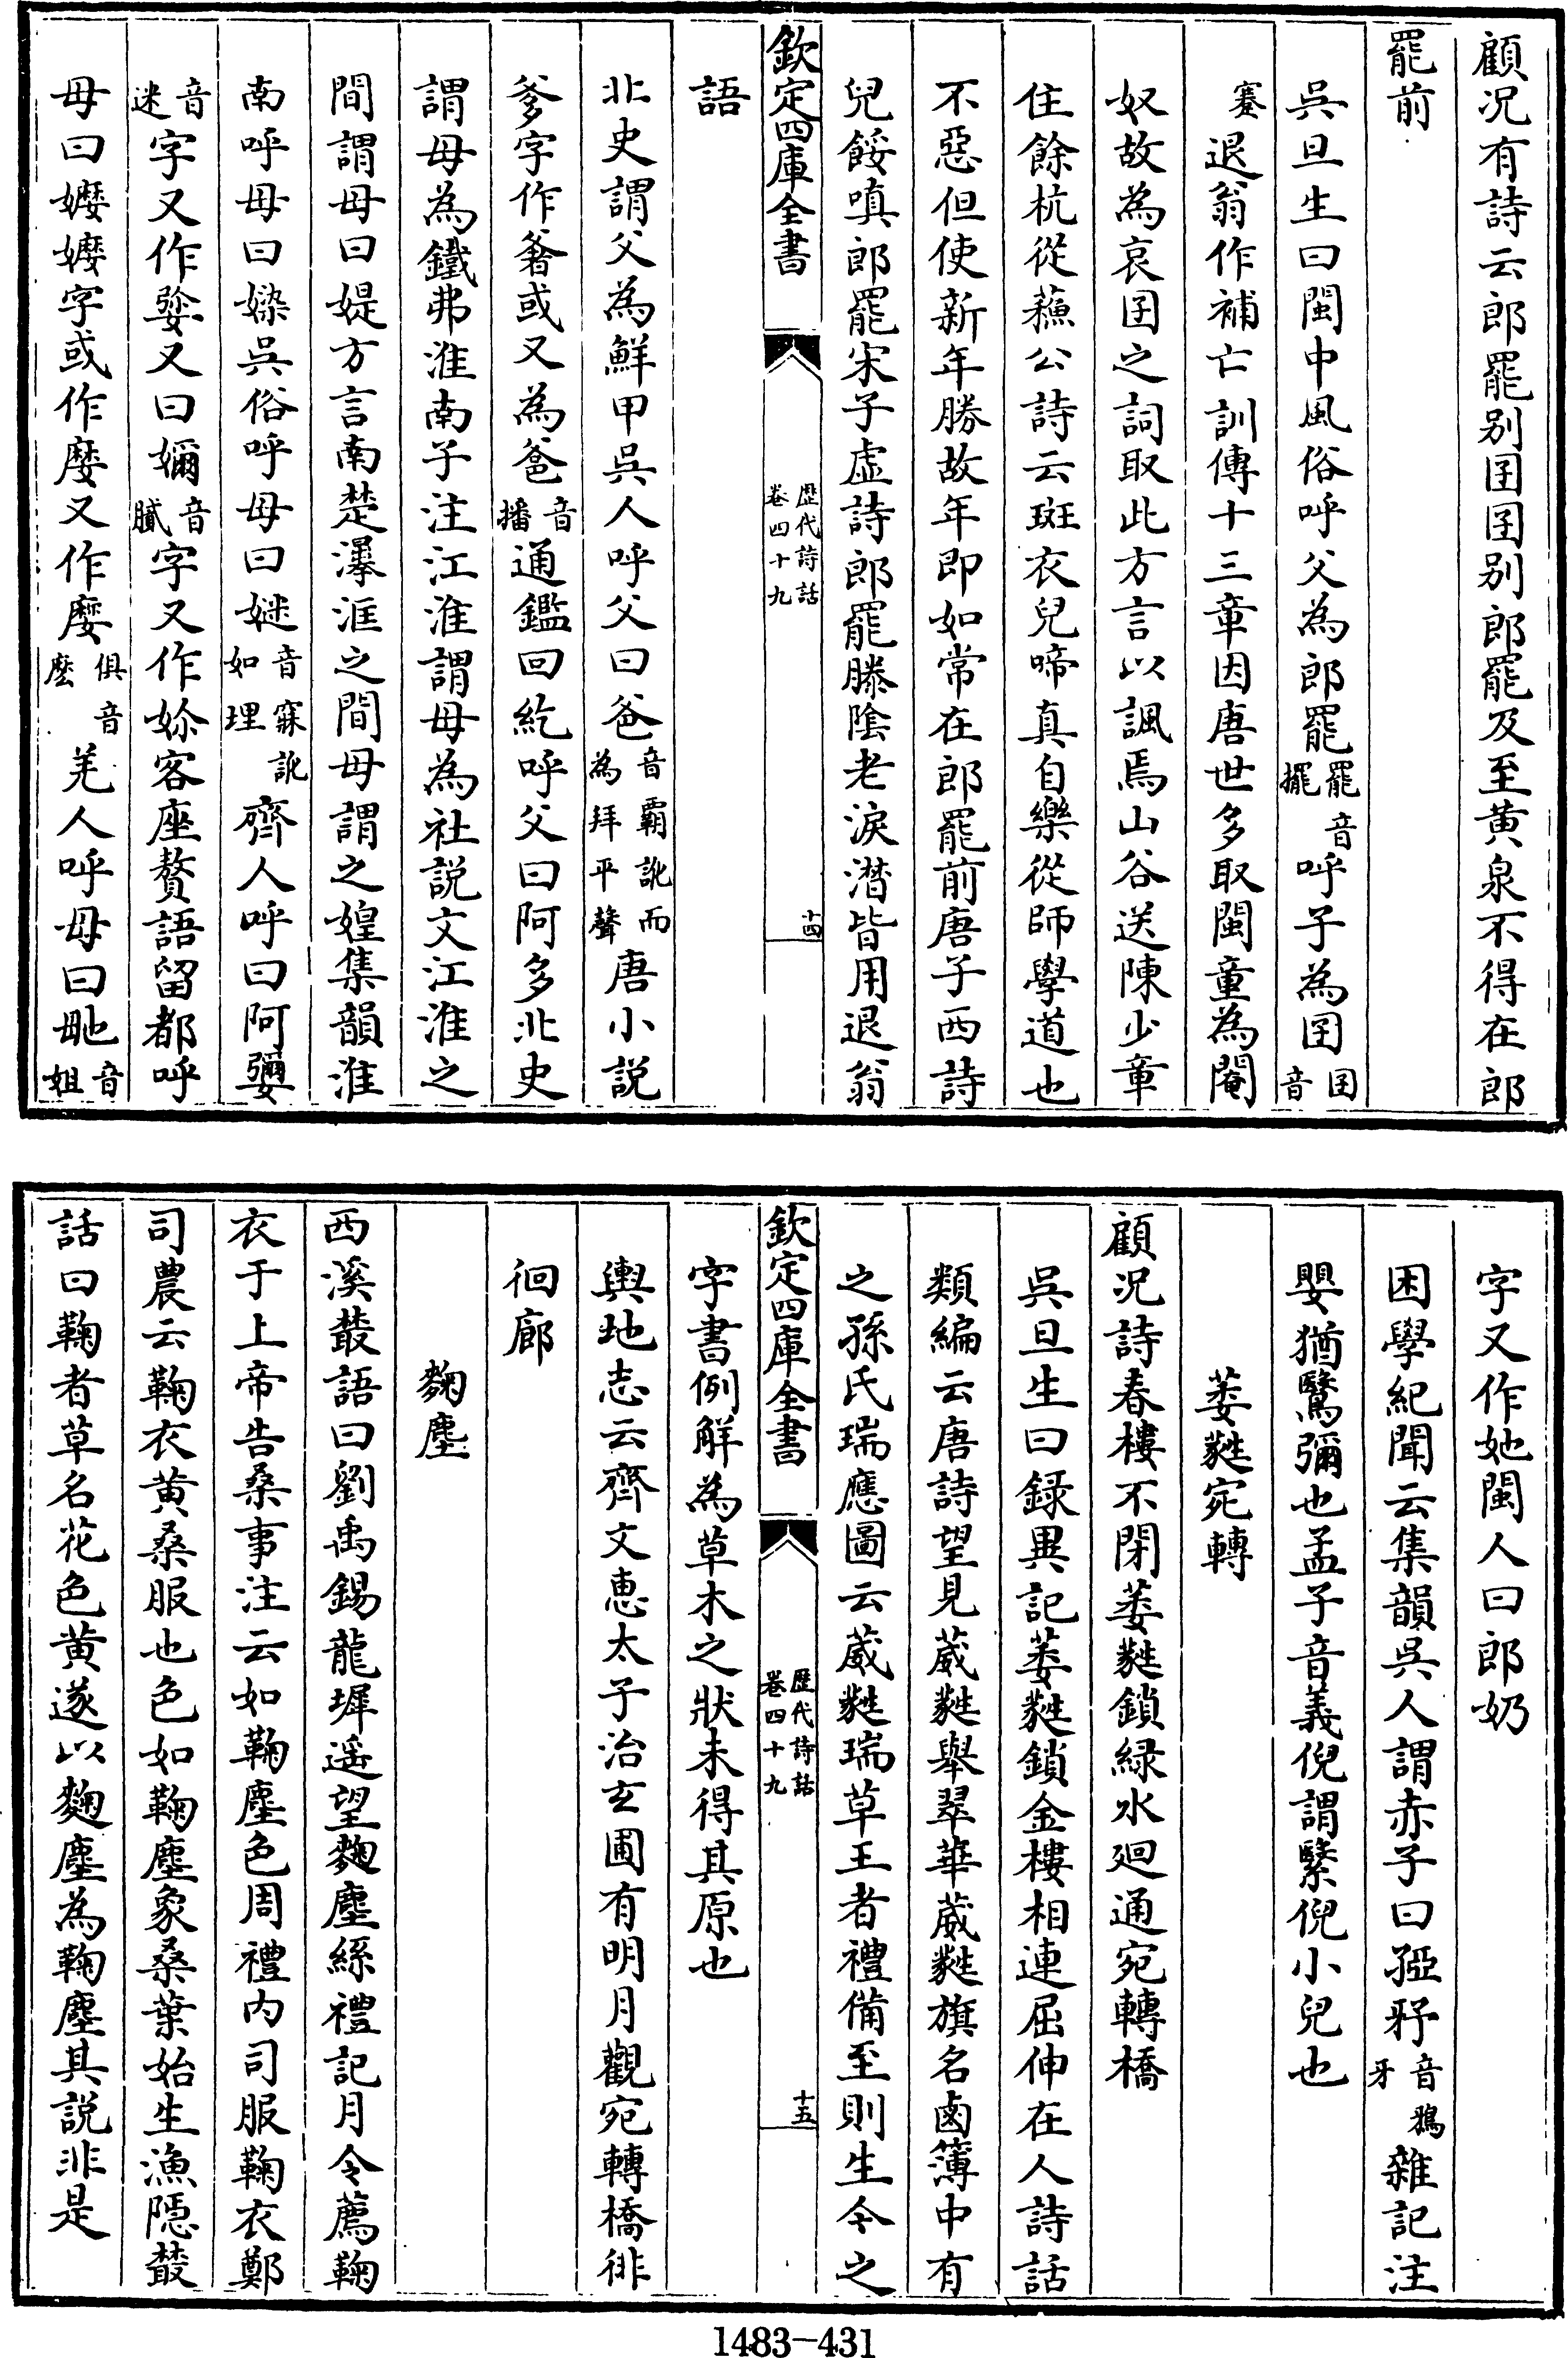 顧况有詩云郎罷别囝囝别郎罷及至黄泉不得在郎
罷前
吳旦生曰閩中風俗呼父為郎罷罷音擺呼子為囝囝音
蹇退翁作補亡訓傳十三章因唐世多取閩童為閹
奴故為哀囝之詞取此方言以諷焉山谷送陳少章
住餘杭從蘓公詩云斑衣兒啼真自樂從師學道也
不惡但使新年勝故年即如常在郎罷前唐子西詩
兒餒嗔郎罷宋子虚詩郎罷滕隂老淚潸皆用退翁
欽定四庫全書
歴代詩話
卷四十九
十四
語
北史謂父為鮮甲吳人呼父曰爸音霸訛而為拜平聲唐小説
爹字作奢或又為爸音播通鑑回紇呼父曰阿多北史
謂母為鐵弗淮南子注江淮謂母為社説文江淮之
間謂母曰媞方言南楚瀑洭之間母謂之媓集韻淮
南呼母曰㜆吳俗呼母曰㜷音寐訛如理齊人呼曰阿㜷
音迷字又作㜷又曰嬭音膩字又作妳客座贅語留都呼
母曰嬤嬤字或作麽又作麽俱音麽羌人呼母曰毑音姐
字又作她閩人曰郎奶
困學紀聞云集韻吳人謂赤子曰㾎㸧音鴉牙雜記注
嬰猶鷖彌也孟子音義倪謂繄倪小兒也
葳蕤宛轉
顧况詩春樓不閉葳蕤鎖緑水廻通宛轉橋
吳旦生曰録異記葳蕤鎖金樓相連屈伸在人詩話
類編云唐詩望見葳蕤舉翠華葳蕤旗名鹵簿中有
欽定四庫全書
歴代詩話
卷四十九
十五
之孫氏瑞應圖云葳蕤瑞草王者禮備至則生今之
字書例解為草木之狀未得其原也
輿地志云齊文恵太子治玄圃有明月觀宛轉橋徘
徊廊
麴塵
西溪叢語曰劉禹錫龍墀遥望麴塵絲禮記月令薦鞠
衣于上帝告桑事注云如鞠塵色周禮内司服鞠衣鄭
司農云鞠衣黄桑服也色如鞠塵象桑葉始生漁隠叢
話曰鞠者草名花色黄遂以麴塵為鞠塵其説非是
1483-431